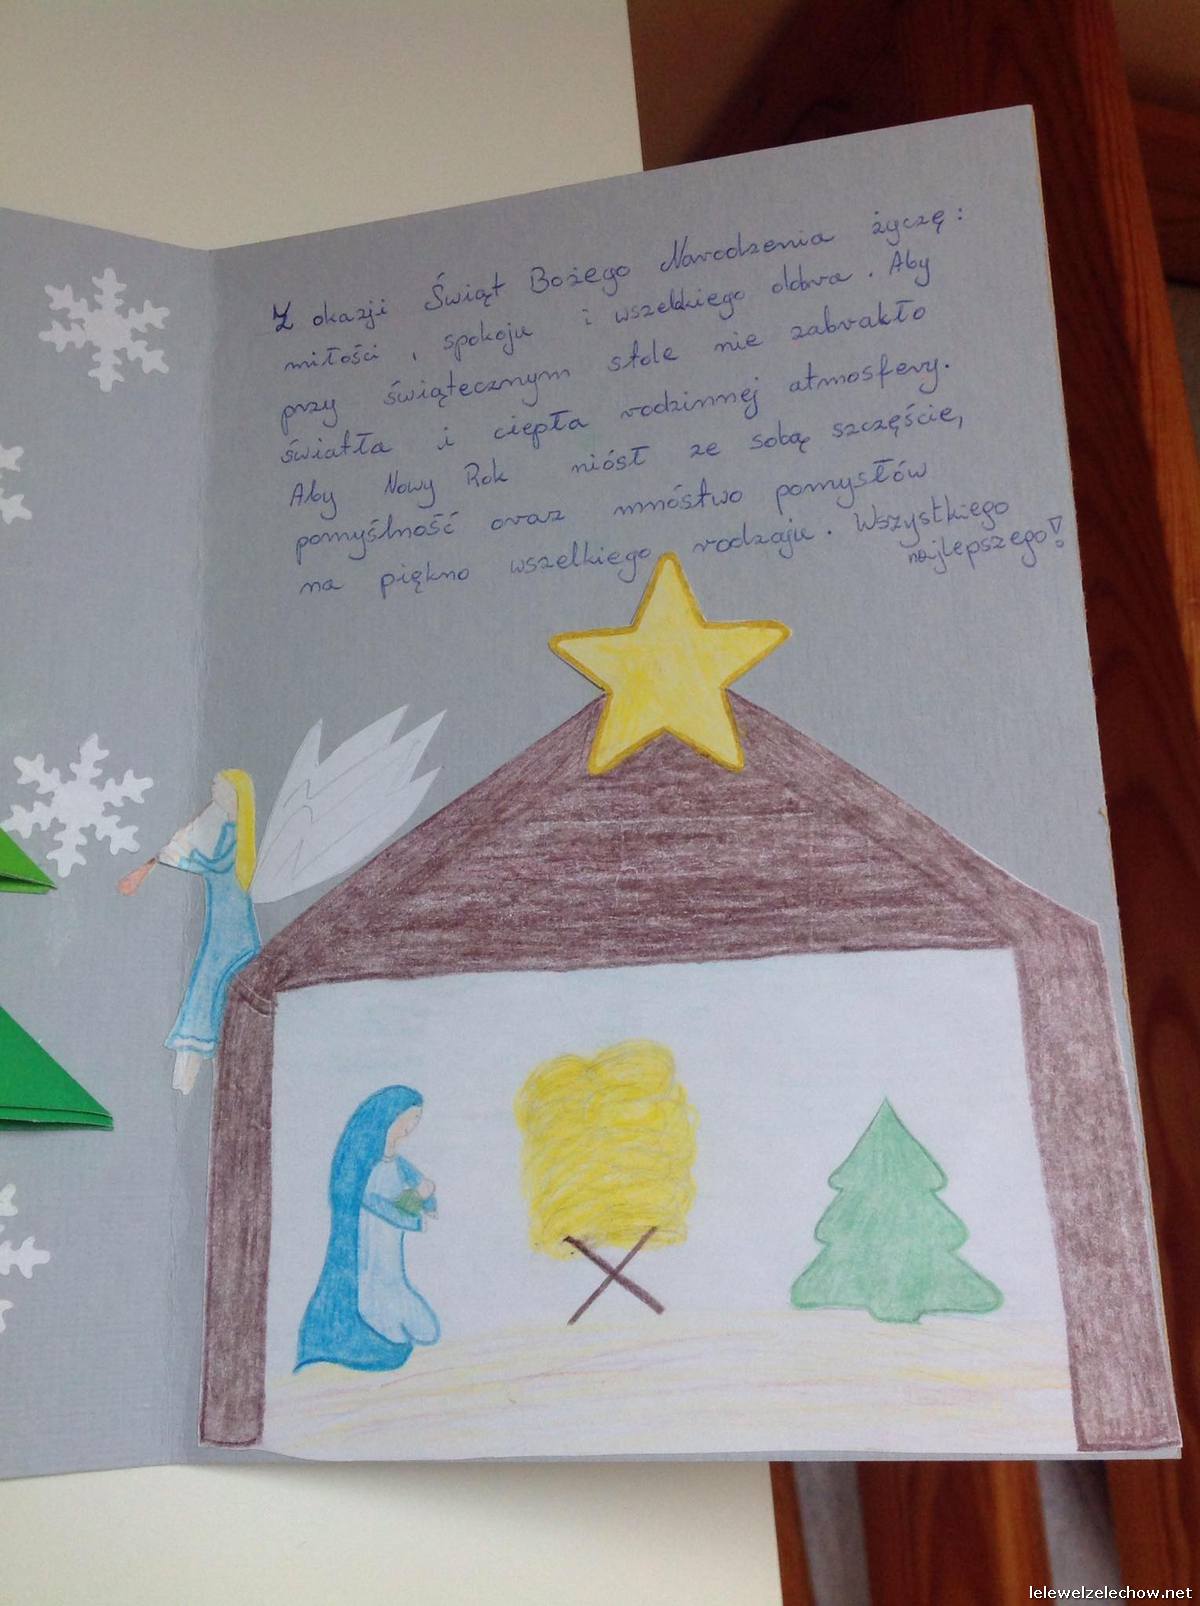 Z okazji Świąt Bożego Narodzenia życzę:
miłości, spokoju i wszelkiego dobra. Aby
przy świątecznym stole nie zabrakło
światła i ciepła rodzinnej atmosfery.
Aby Nowy Rok niósł ze sobą szczęście,
pomyślność oraz mnóstwo pomysłów
na piękno wszelkiego rodzaju. Wszystkiego
najlepszego!
lelewelzelechow.net